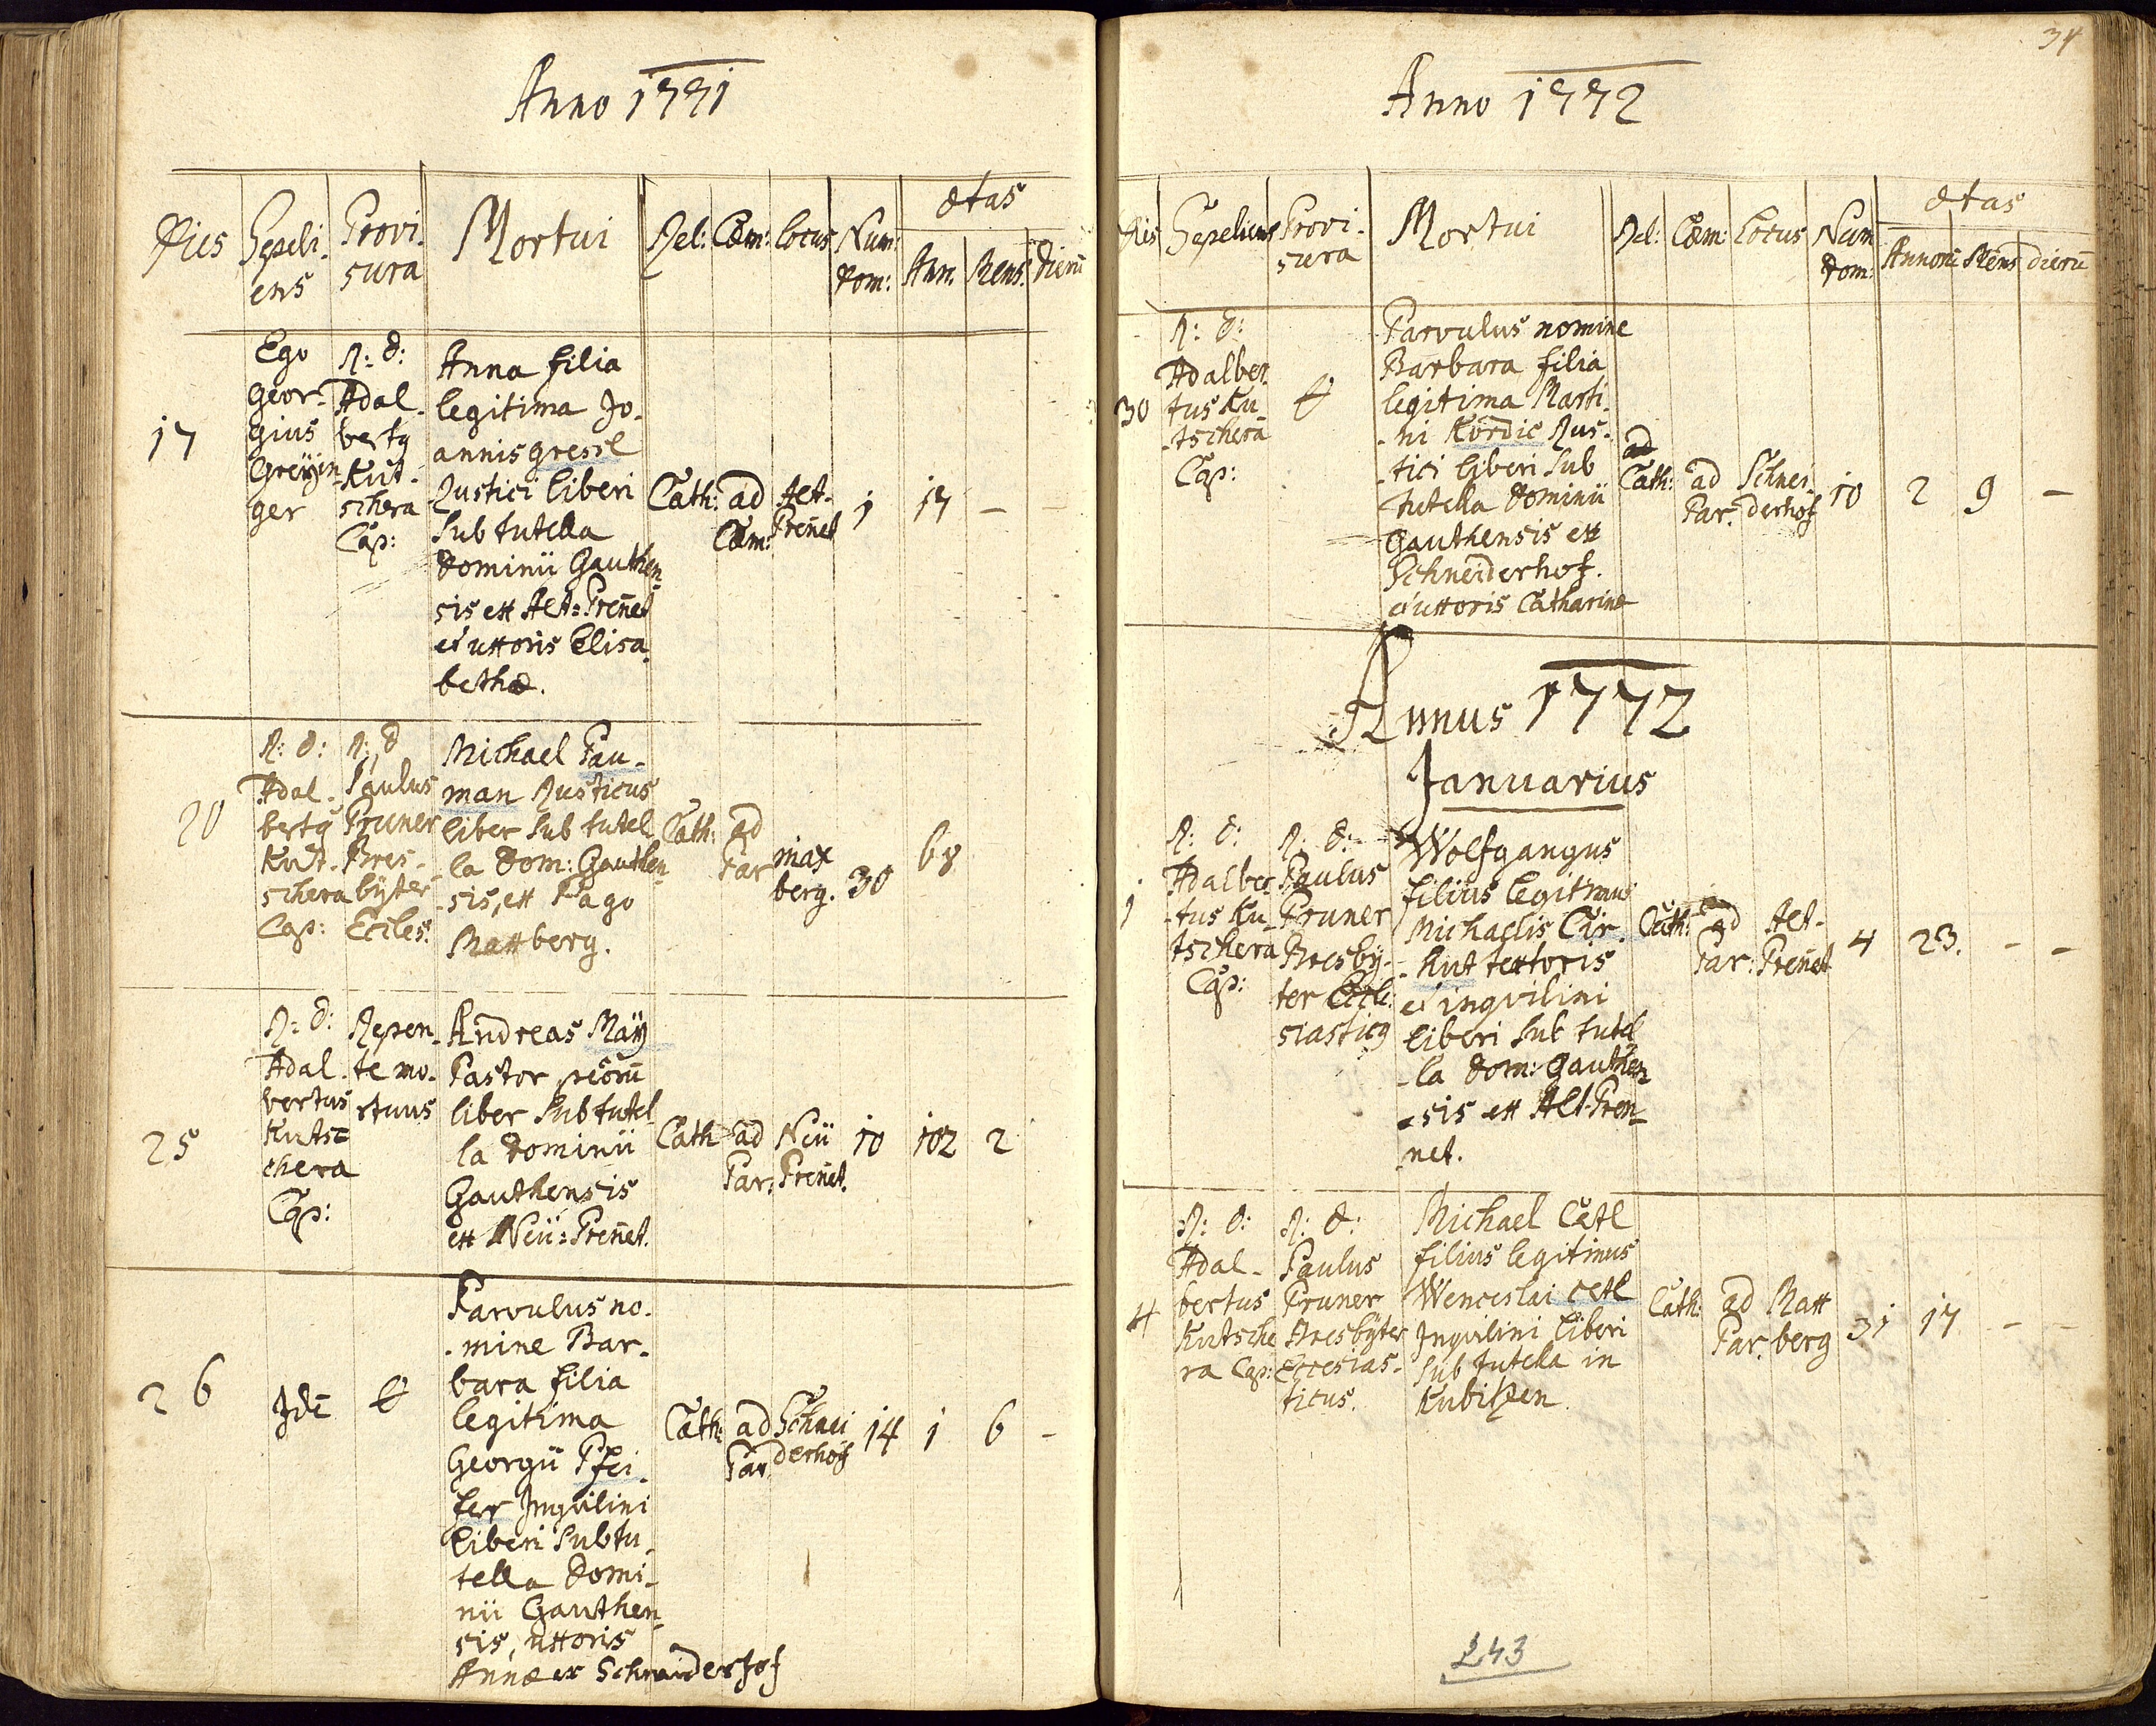 Anno 1771
Dies Sepeli- Provi- Mortui Rel: Cæm: Locus Num: ætas
ens sura dom: Ann. Mens. dierū
Ego
Geor-
gius
Greyin
ger
R: d:
Adal-
bertg
Kut-
schera
Cap:
17
Anna filia
legitima Jo-
annis gressl
Rustici liberi
Sub tutella
Dominii Gauthen-
sis ex Alt=Prennet
et uxoris Elisa-
bethæ.
Cath: ad Alt-
Cæm: Prennet
1 17 -
20
R: d:
Adal-
bertg
Kut-
schera
Cap:
R: d
Paulus
Pruner
Pres-
byter
Eccles:
Michael Pau-
man Rusticus
liber Sub tutel
la Dom: Gauthen-
sis, ex Pago
Maxberg.
Cath: ad max
Par berg.
30 68
25
R: d:
Adal-
bertus
Kutsc
chera
Cap:
Repen-
te mo-
rtuus
Andreas Maÿ
Pastor pecorū
liber Sub tutel-
la Dominii
Gauthensis
ex Neü=Prennet.
Cath ad Neü
Par: Prennet.
10 102 2
26
Idē
Parvulus no-
mine Bar-
bara filia
legitima
Georgii Pfei-
fer Inqvilini
liberi Sub tu-
tella Domi-
nii Gauthen-
sis, uxoris
Annæ ex Schneiderhof
Cath: ad Schnei
Par derhof
14 1 6 -
34
Anno 1772
Dies Sepeliens Provi- Mortui Rel: Cæm: Locus Num ætas
sura dom: Annorū Mens dierū
30
R: d:
Adalber-
tus Ku-
tschera
Cap:
Parvulus nomine
Barbara filia
legitima Marti-
ni Kordic Rus-
tici liberi Sub
tutella Dominii
Gauthensis ex
Schneiderhof.
et uxoris Catharinæ
ad
Cath: ad Schnei
Par: derhof
10 2 9 -
Annus 1772
Januarius
1
R: d:
Adalber-
tus Ku-
tschera
Cap:
R: d:
Paulus
Pruner
Presby-
ter Eccle:
siasticg
Wolfgangus
filius legitimus
Michaelis Cir-
kut textoris
et inqvilini
liberi Sub tutel
la Dom: Gauthen
sis ex Alt-Pren-
net.
Cath: ad Alt-
Par: Prennet
4 23. - -
4
R: d:
Adal-
bertus
Kutsche
ra Cap:
R: d:
Paulus
Pruner
Presbyter
Ecclesias-
ticus.
Michael Cetl
filius legitimus
Wenceslai cetl
Inqvilini liberi
Sub tutella in
Kubitzen
Cath: ad Max
Par. berg
31 17 - -
243